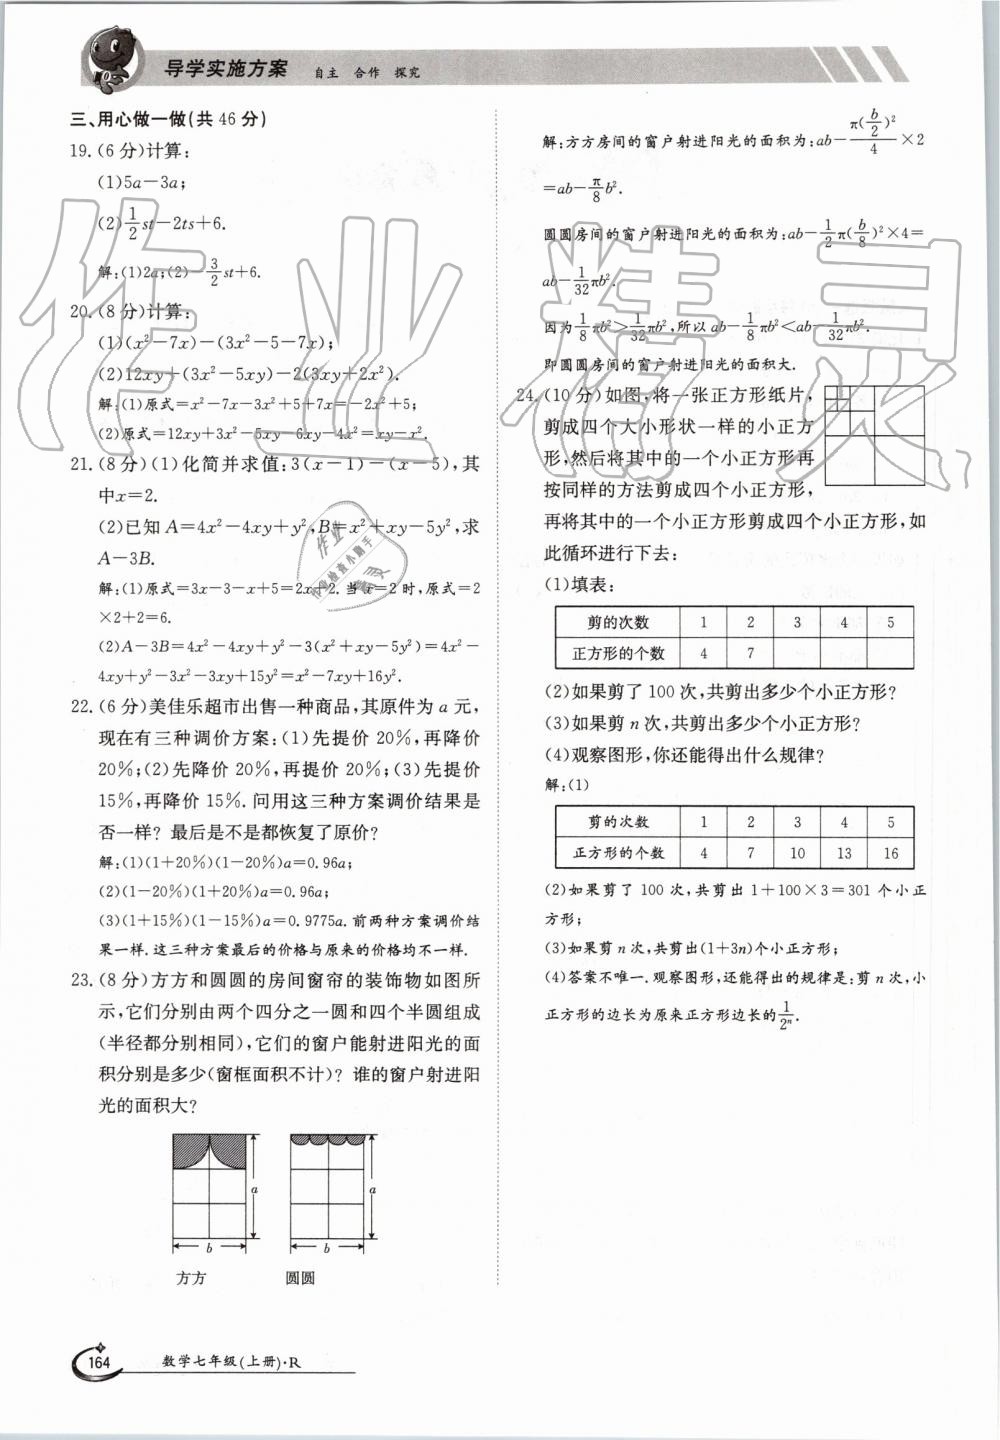 导学实施方案 自主 合作 探究
三、用心做一做(共 46 分)
19.(6 分)计算:
(1)5a-3a;
(2)\frac{1}{2}st-2ts+6.
解:(1)2a;(2)-\frac{3}{2}st+6.
20.(8 分)计算:
(1)(x²-7x)-(3x²-5-7x);
(2)12xy+(3x²-5xy)-2(3xy+2x²).
解:(1)原式=x²-7x-3x²+5+7x=-2x²+5;
(2)原式=12xy+3x²-5xy-6xy-4x²=xy-x².
21.(8 分)(1)化简并求值:3(x-1)-(x-5),其
中x=2.
(2)已知 A=4x²-4xy+y²,B=x²+xy-5y²,求
A-3B.
解:(1)原式=3x-3-x+5=2x+2.当x=2时,原式=2
×2+2=6.
(2)A-3B=4x²-4xy+y²-3(x²+xy-5y²)=4x²-
4xy+y²-3x²-3xy+15y²=x²-7xy+16y².
22.(6 分)美佳乐超市出售一种商品,其原件为 a 元,
现在有三种调价方案:(1)先提价 20%,再降价
20%;(2)先降价 20%,再提价 20%;(3)先提价
15%,再降价 15%. 问用这三种方案调价结果是
否一样? 最后是不是都恢复了原价?
解:(1)(1+20%)(1-20%)a=0.96a;
(2)(1-20%)(1+20%)a=0.96a;
(3)(1+15%)(1-15%)a=0.9775a. 前两种方案调价结
果一样.这三种方案最后的价格与原来的价格均不一样.
23.(8 分)方方和圆圆的房间窗帘的装饰物如图所
示,它们分别由两个四分之一圆和四个半圆组成
(半径都分别相同),它们的窗户能射进阳光的面
积分别是多少(窗框面积不计)? 谁的窗户射进阳
光的面积大?
a a
b b
方方 圆圆
解:方方房间的窗户射进阳光的面积为:ab-\frac{π(\frac{b}{2})²}{4}×2
=ab-\frac{π}{8}b².
圆圆房间的窗户射进阳光的面积为:ab-\frac{1}{2}π(\frac{b}{8})²×4=
ab-\frac{1}{32}πb².
因为\frac{1}{8}πb²>\frac{1}{32}πb²,所以 ab-\frac{1}{8}πb²<ab-\frac{1}{32}πb².
即圆圆房间的窗户射进阳光的面积大.
24.(10 分)如图,将一张正方形纸片,
剪成四个大小形状一样的小正方
形,然后将其中的一个小正方形再
按同样的方法剪成四个小正方形,
再将其中的一个小正方形剪成四个小正方形,如
此循环进行下去:
(1)填表:
剪的次数 1 2 3 4 5
正方形的个数 4 7
(2)如果剪了 100 次,共剪出多少个小正方形?
(3)如果剪 n 次,共剪出多少个小正方形?
(4)观察图形,你还能得出什么规律?
解:(1)
剪的次数 1 2 3 4 5
正方形的个数 4 7 10 13 16
(2)如果剪了 100 次,共剪出 1+100×3=301 个小正
方形;
(3)如果剪 n 次,共剪出(1+3n)个小正方形;
(4)答案不唯一.观察图形,还能得出的规律是:剪 n次,小
正方形的边长为原来正方形边长的\frac{1}{2ⁿ}.
作业精灵
164 数学七年级(上册)·R